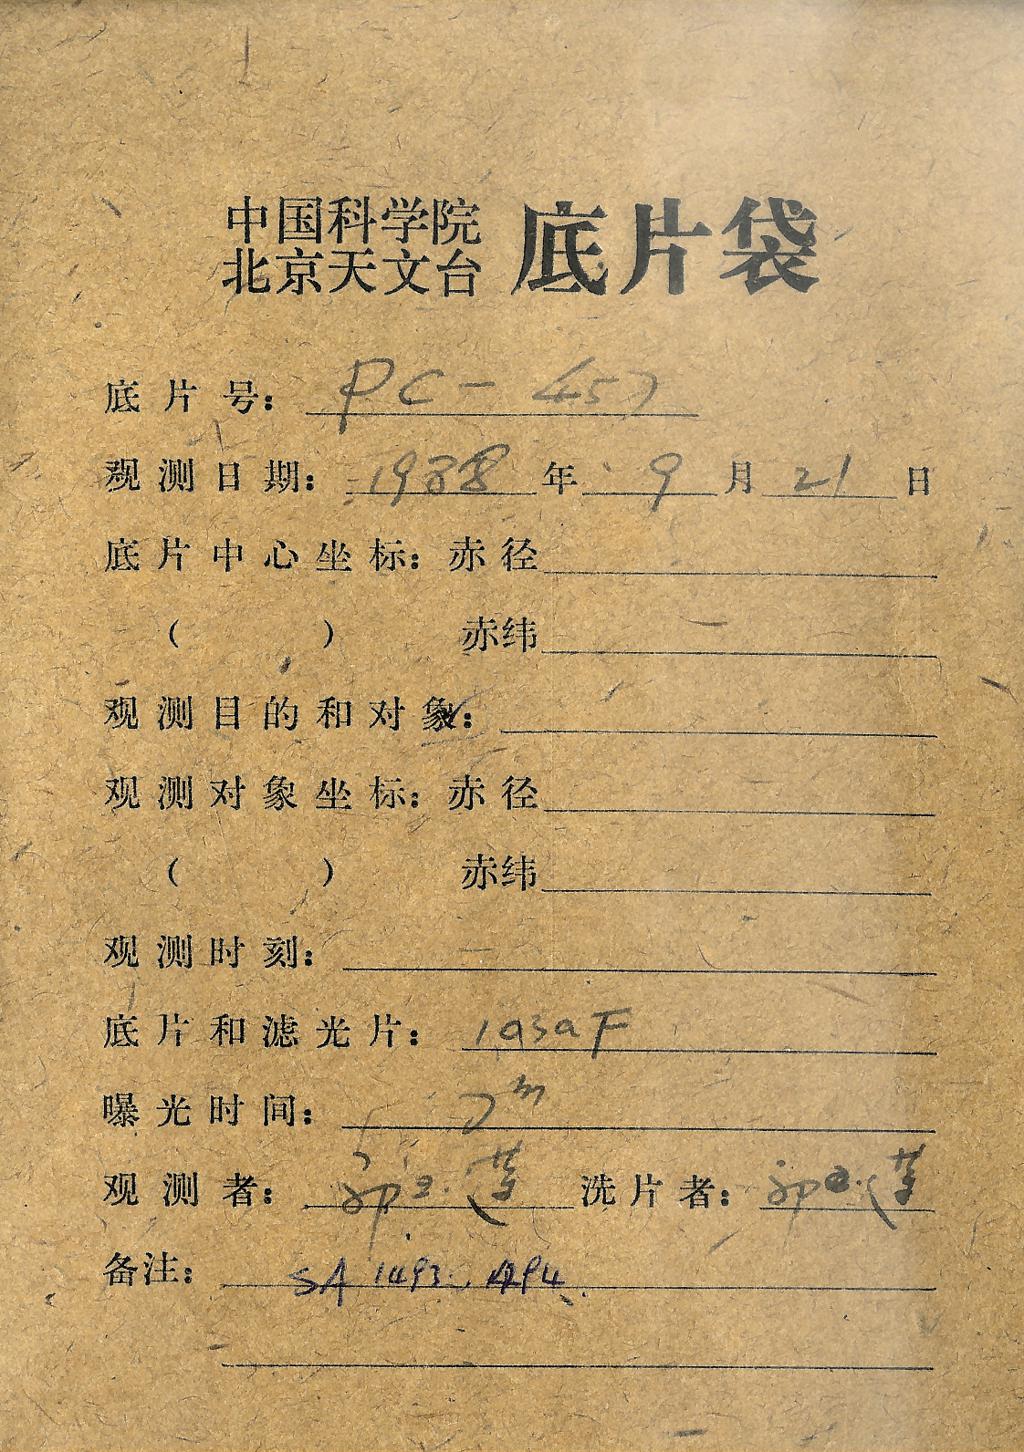 中国科学院
北京天文台 底片袋
底片号： PC-457
观测日期： 1988 年 9 月 21 日
底片中心坐标：赤径
（ ） 赤纬
观测目的和对象：
观测对象坐标：赤径
（ ） 赤纬
观测时刻：
底片和滤光片： 103aF
曝光时间： 7m
观测者： 洗片者：
备注： SA 1493. 494